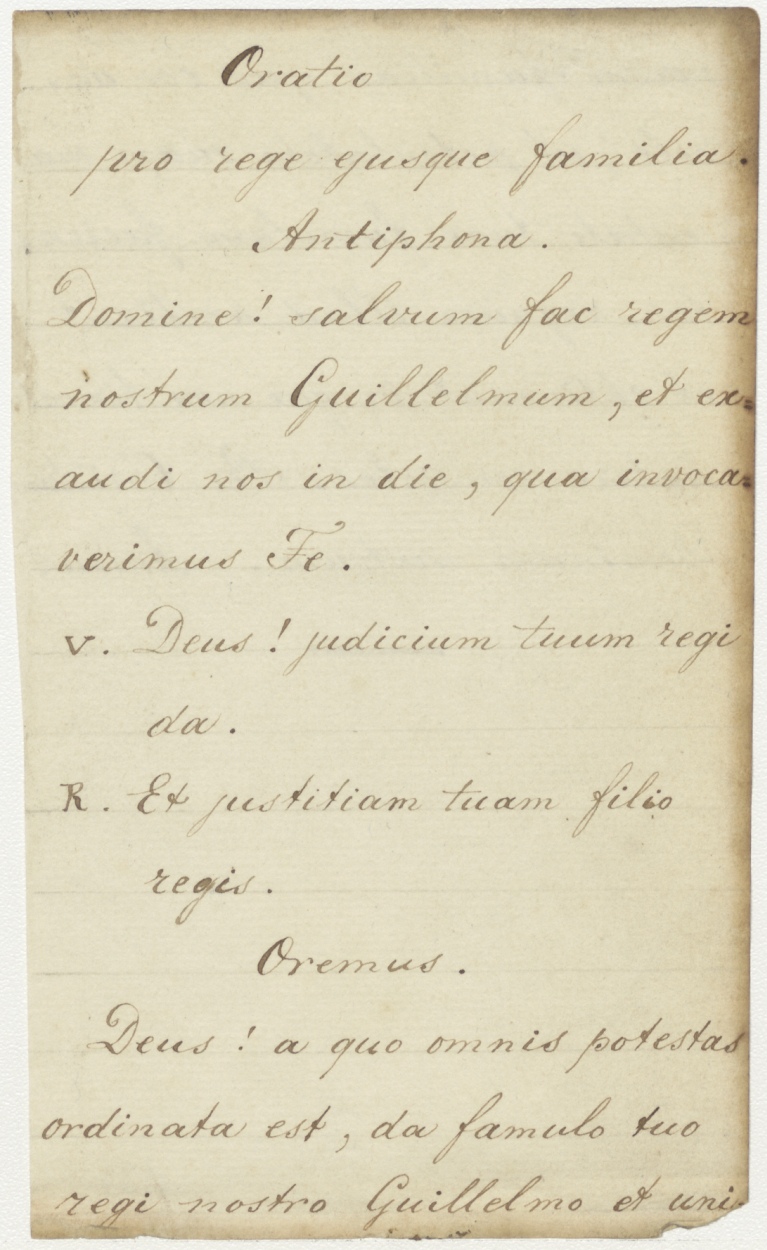 Oratio
pro rege ejusque familia.
Antiphona.
Domine! salvum fac regem
nostrum Guillelmum, et ex=
audi nos in die, qua invoca=
verimus Te.
V. Deus! judicium tuum regi
da.
R. Et justitiam tuam filio
regis.
Oremus.
Deus! a quo omnis potestas
ordinata est, da famulo tuo
regi nostro Guillelmo et uni-